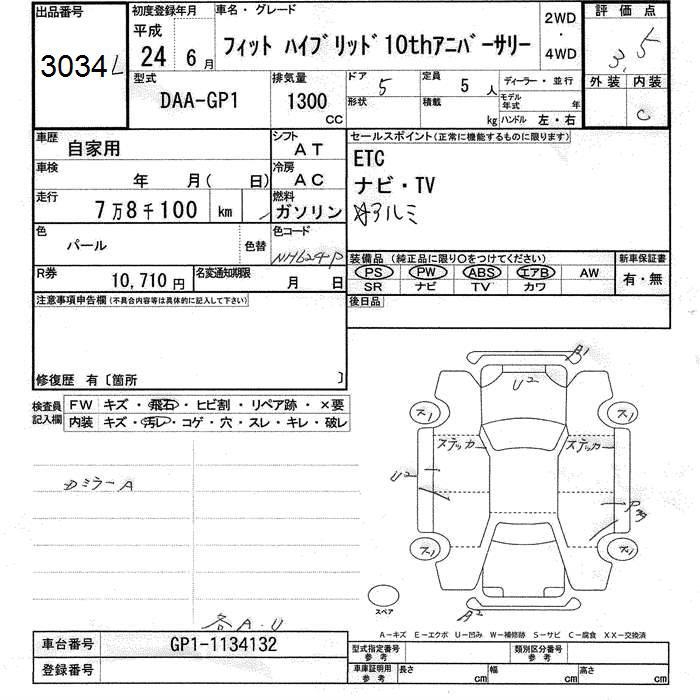 出品番号 初度登録年月 車名・グレード 2WD・4WD 評価点
3034 平成 24 6月 フィット ハイブリッド 10thアニバーサリー 3.5
型式 排気量 ドア 定員 ディーラー・並行 外装 内装
DAA-GP1 1300cc 5 5人 モデル年式 年 C
形状 積載 kg ハンドル 左・右
車歴 自家用 シフト AT セールスポイント(正常に機能するものに限ります)
車検 年 月( 日) 冷房 AC ETC
走行 7万8千100 km 燃料 ガソリン ナビ・TV
アルミ
色 パール 色替 色コード NH624P
装備品(純正品に限り○をつけてください) 新車保証書
PS PW ABS エアB AW 有・無
SR ナビ TV カワ
R券 10,710円 名変通知期限 月 日
後日品
注意事項申告欄(不具合内容等は具体的に記入して下さい)
修復歴 有〔箇所 〕
検査員記入欄 FW キズ・飛石・ヒビ割・リペア跡・×要
内装 キズ・汚レ・コゲ・穴・スレ・キレ・破レ
A1
U2
ス1 ス1
ステッカー ステッカー
ミラーA
U2
ス1 ス1
スペア
A2
各A.U
A−キズ E−エクボ U−凹み W−補修跡 S−サビ C−腐食 XX−交換済
車台番号 GP1-1134132
型式指定番号 参考 類別区分番号 参考
登録番号
車庫証明用 参考 長さ cm 幅 cm 高さ cm